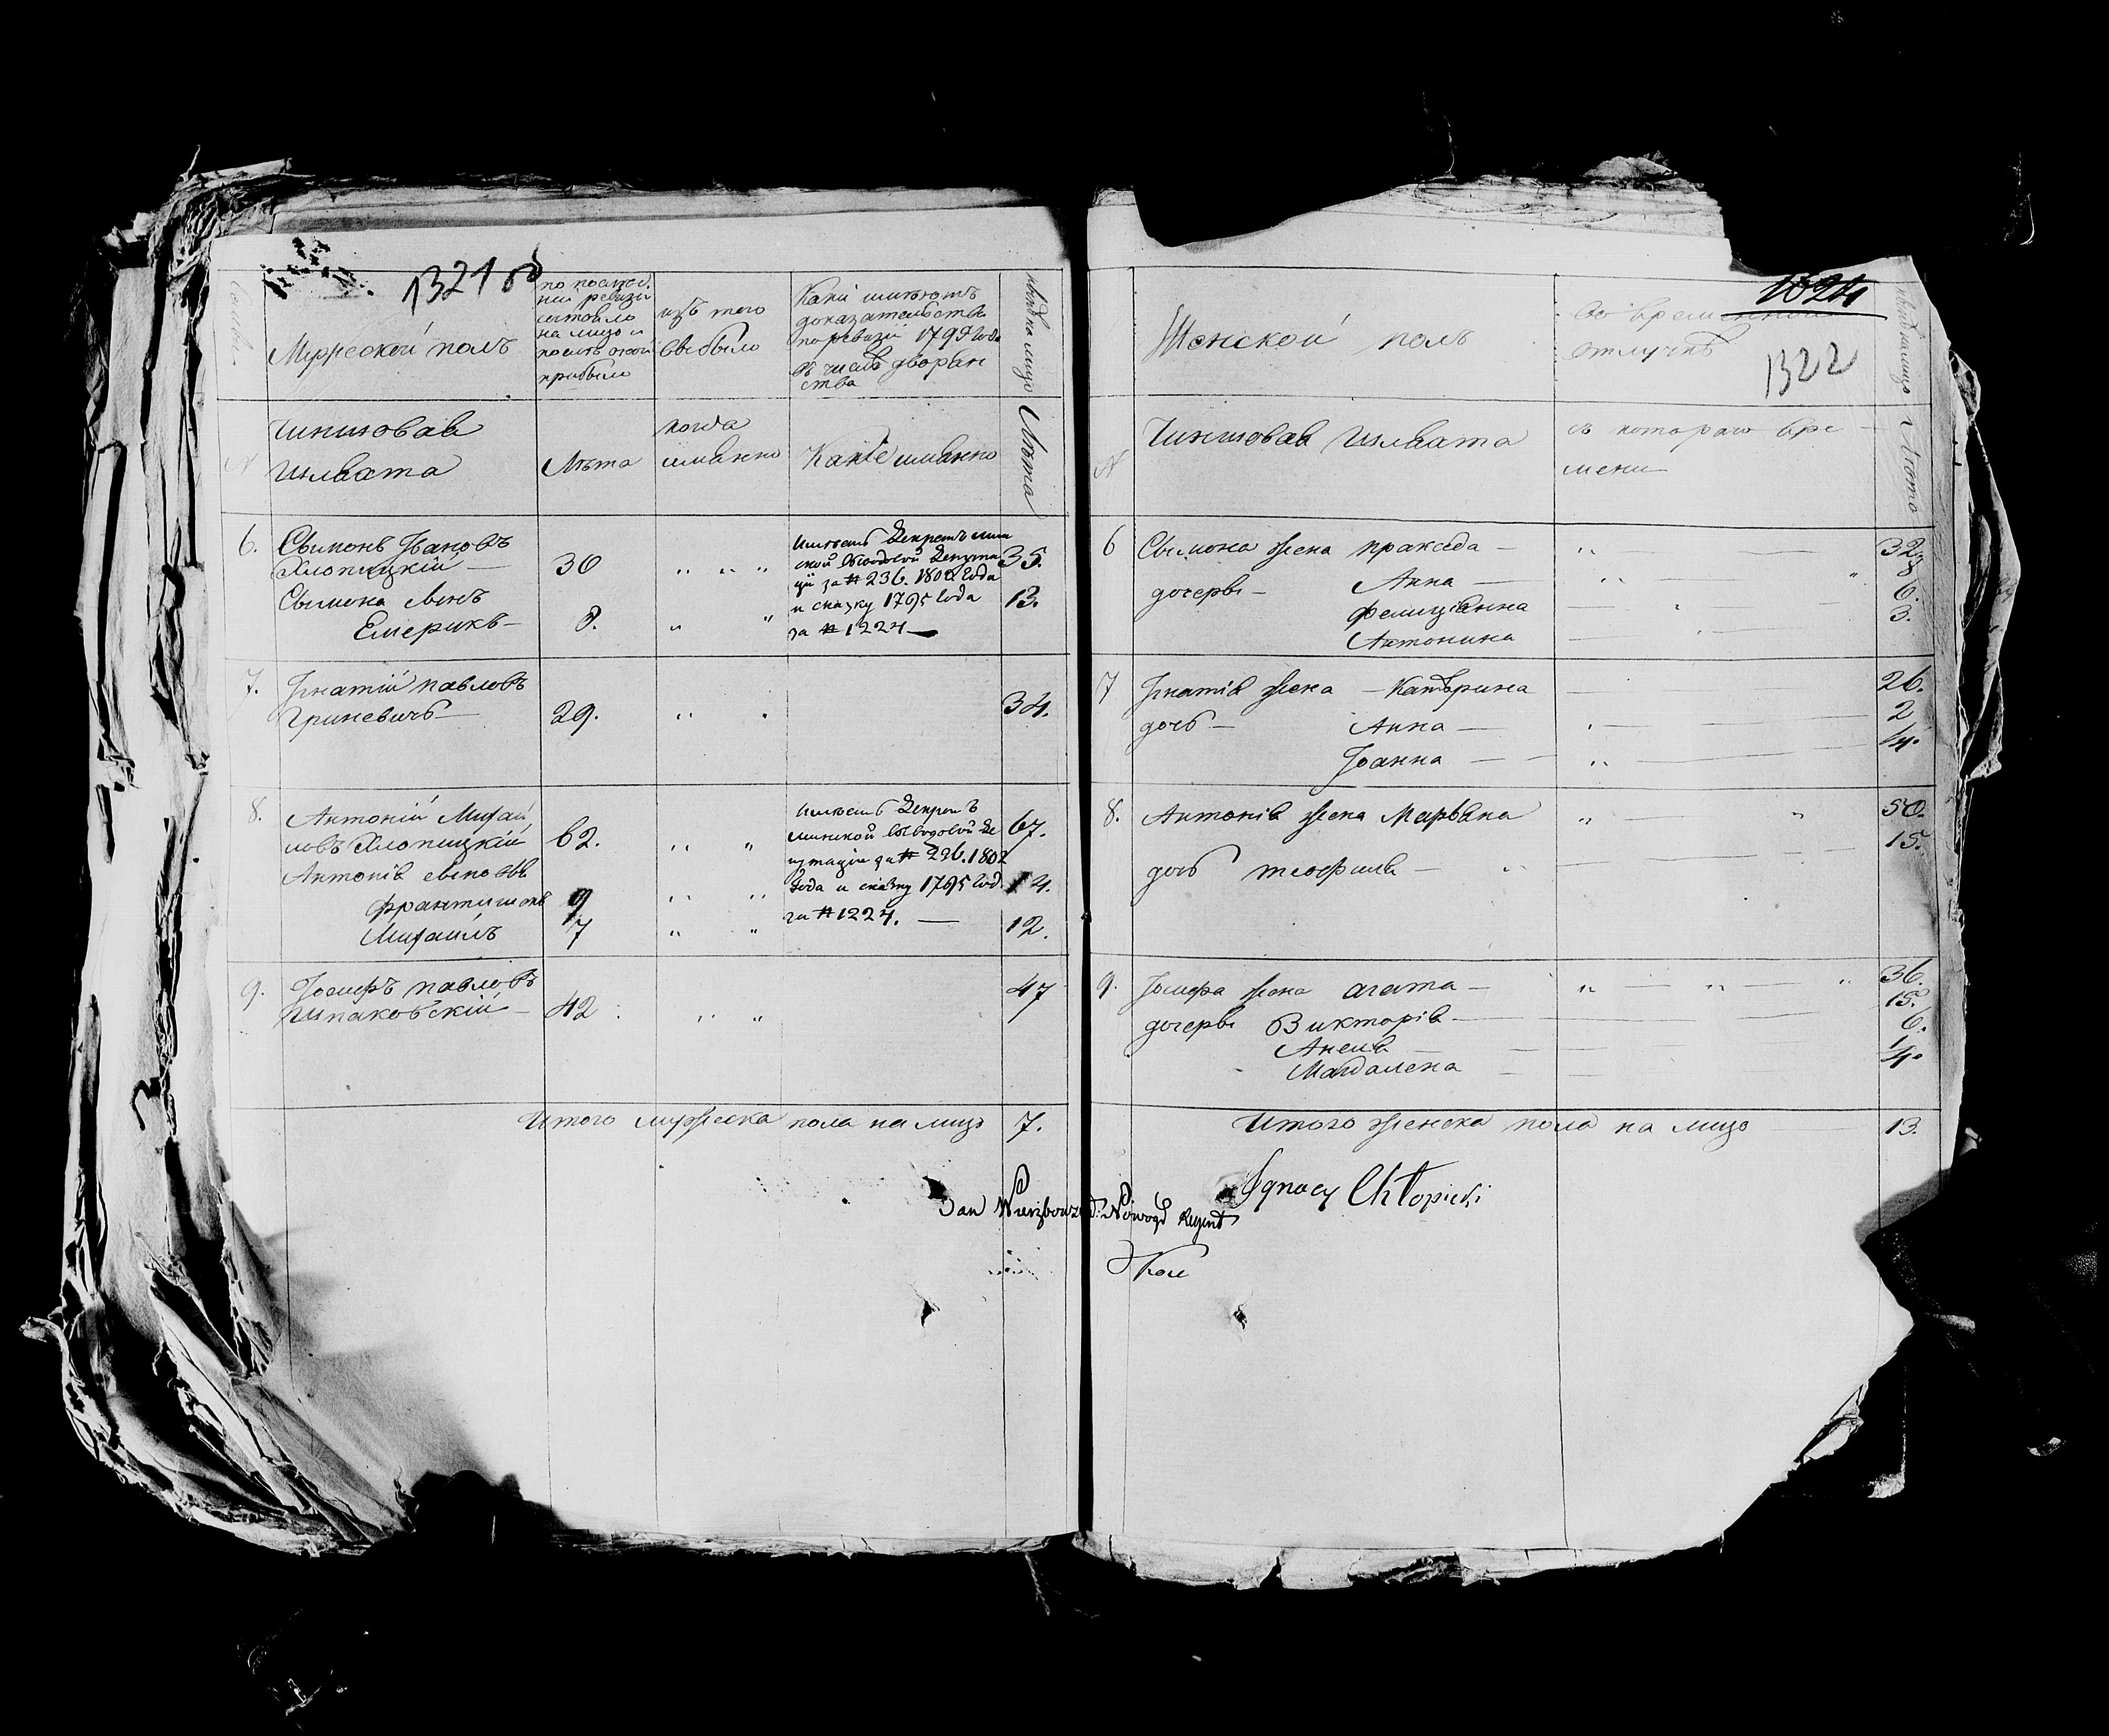 1321 об
Мужеской полъ
по послед.
ней ревизіи
состояло
на лицо и
после оной
прибыло
изъ того
выбыло
Какіе имеютъ
доказательства
по ревизіи 1795 года
въ числе дворян
ства
ныне на лицо
Чиншовая
шляхта
Лѣта
когда
именно
Какіе именно
Лѣта
6. Сымонъ Ивановъ
Хлопицкій — 30 35.
Сымона сынъ
Емерикъ — 8. 13.
имѣетъ Декретъ мин
ской выводовой депута
ціи за № 236. 1802 года
и сказку 1795 года
за № 1224 —
7. Игнатій Павловъ
Гриневичъ — 29. 34.
8. Антоній Михай
ловъ Хлопицкій 62. 67.
Антонія сыновья
Франтишекъ 9 14.
Михаилъ 7 12.
имѣетъ Декретъ
минской выводовой де
путаціи за № 236. 1802
года и сказку 1795 год.
за № 1224. —
9. Іосифъ Павловъ
Шпаковскій — 42 47
Итого мужеска пола на лицо 7.
Jan Wierzbow
1024
1322
Женской полъ
во временной
отлучке
ныне на лицо
N
Чиншовая шляхта
съ котораго вре
мени
Лѣта
6 Сымона жена Пракседа — 32.
дочери — Анна — 8
Фелиціанна 6.
Антонина 3.
7 Игнатія жена — Катерина 26.
дочь — Анна — 2
Іоанна — 1/4.
8. Антонія жена Марьяна 50.
дочь Теофиля — 15.
9. Іосифа жена Агата — 36.
дочери Викторія — 15.
Анеля — 6.
Магдалена 1/4.
Итого женска пола на лицо 13.
Ignacy Chłopicki
Nowogd Regent